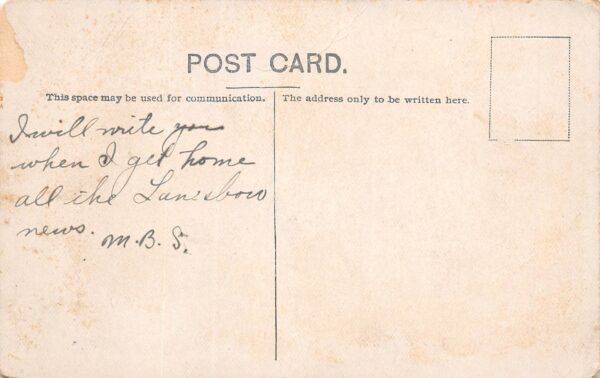 POST CARD.
This space may be used for communication.
The address only to be written here.
I will write you
when I get home
all the Lanesboro
news.
M.B.S.